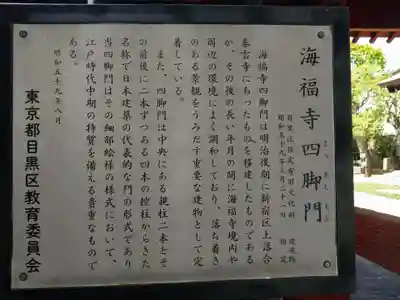 海福寺四脚門
目黒区指定有形文化財
昭和五十九年三月三十一日 指定
海福寺四脚門は明治後期に新宿区上落合
泰雲寺にあったものを移建したものである
が、その後の長い年月の間に海福寺境内や
周辺の環境によく調和しており、落ち着き
のある景観をうみだす重要な建物として定
着している。
また、四脚門は中央にある親柱二本とそ
の前後に二本ずつある四本の控柱からきた
名称で日本建築の代表的な門の形式であり
当四脚門はその細部絵様の様式において、
江戸時代中期の特質を備える貴重なもので
ある。
昭和五十九年八月
東京都目黒区教育委員会